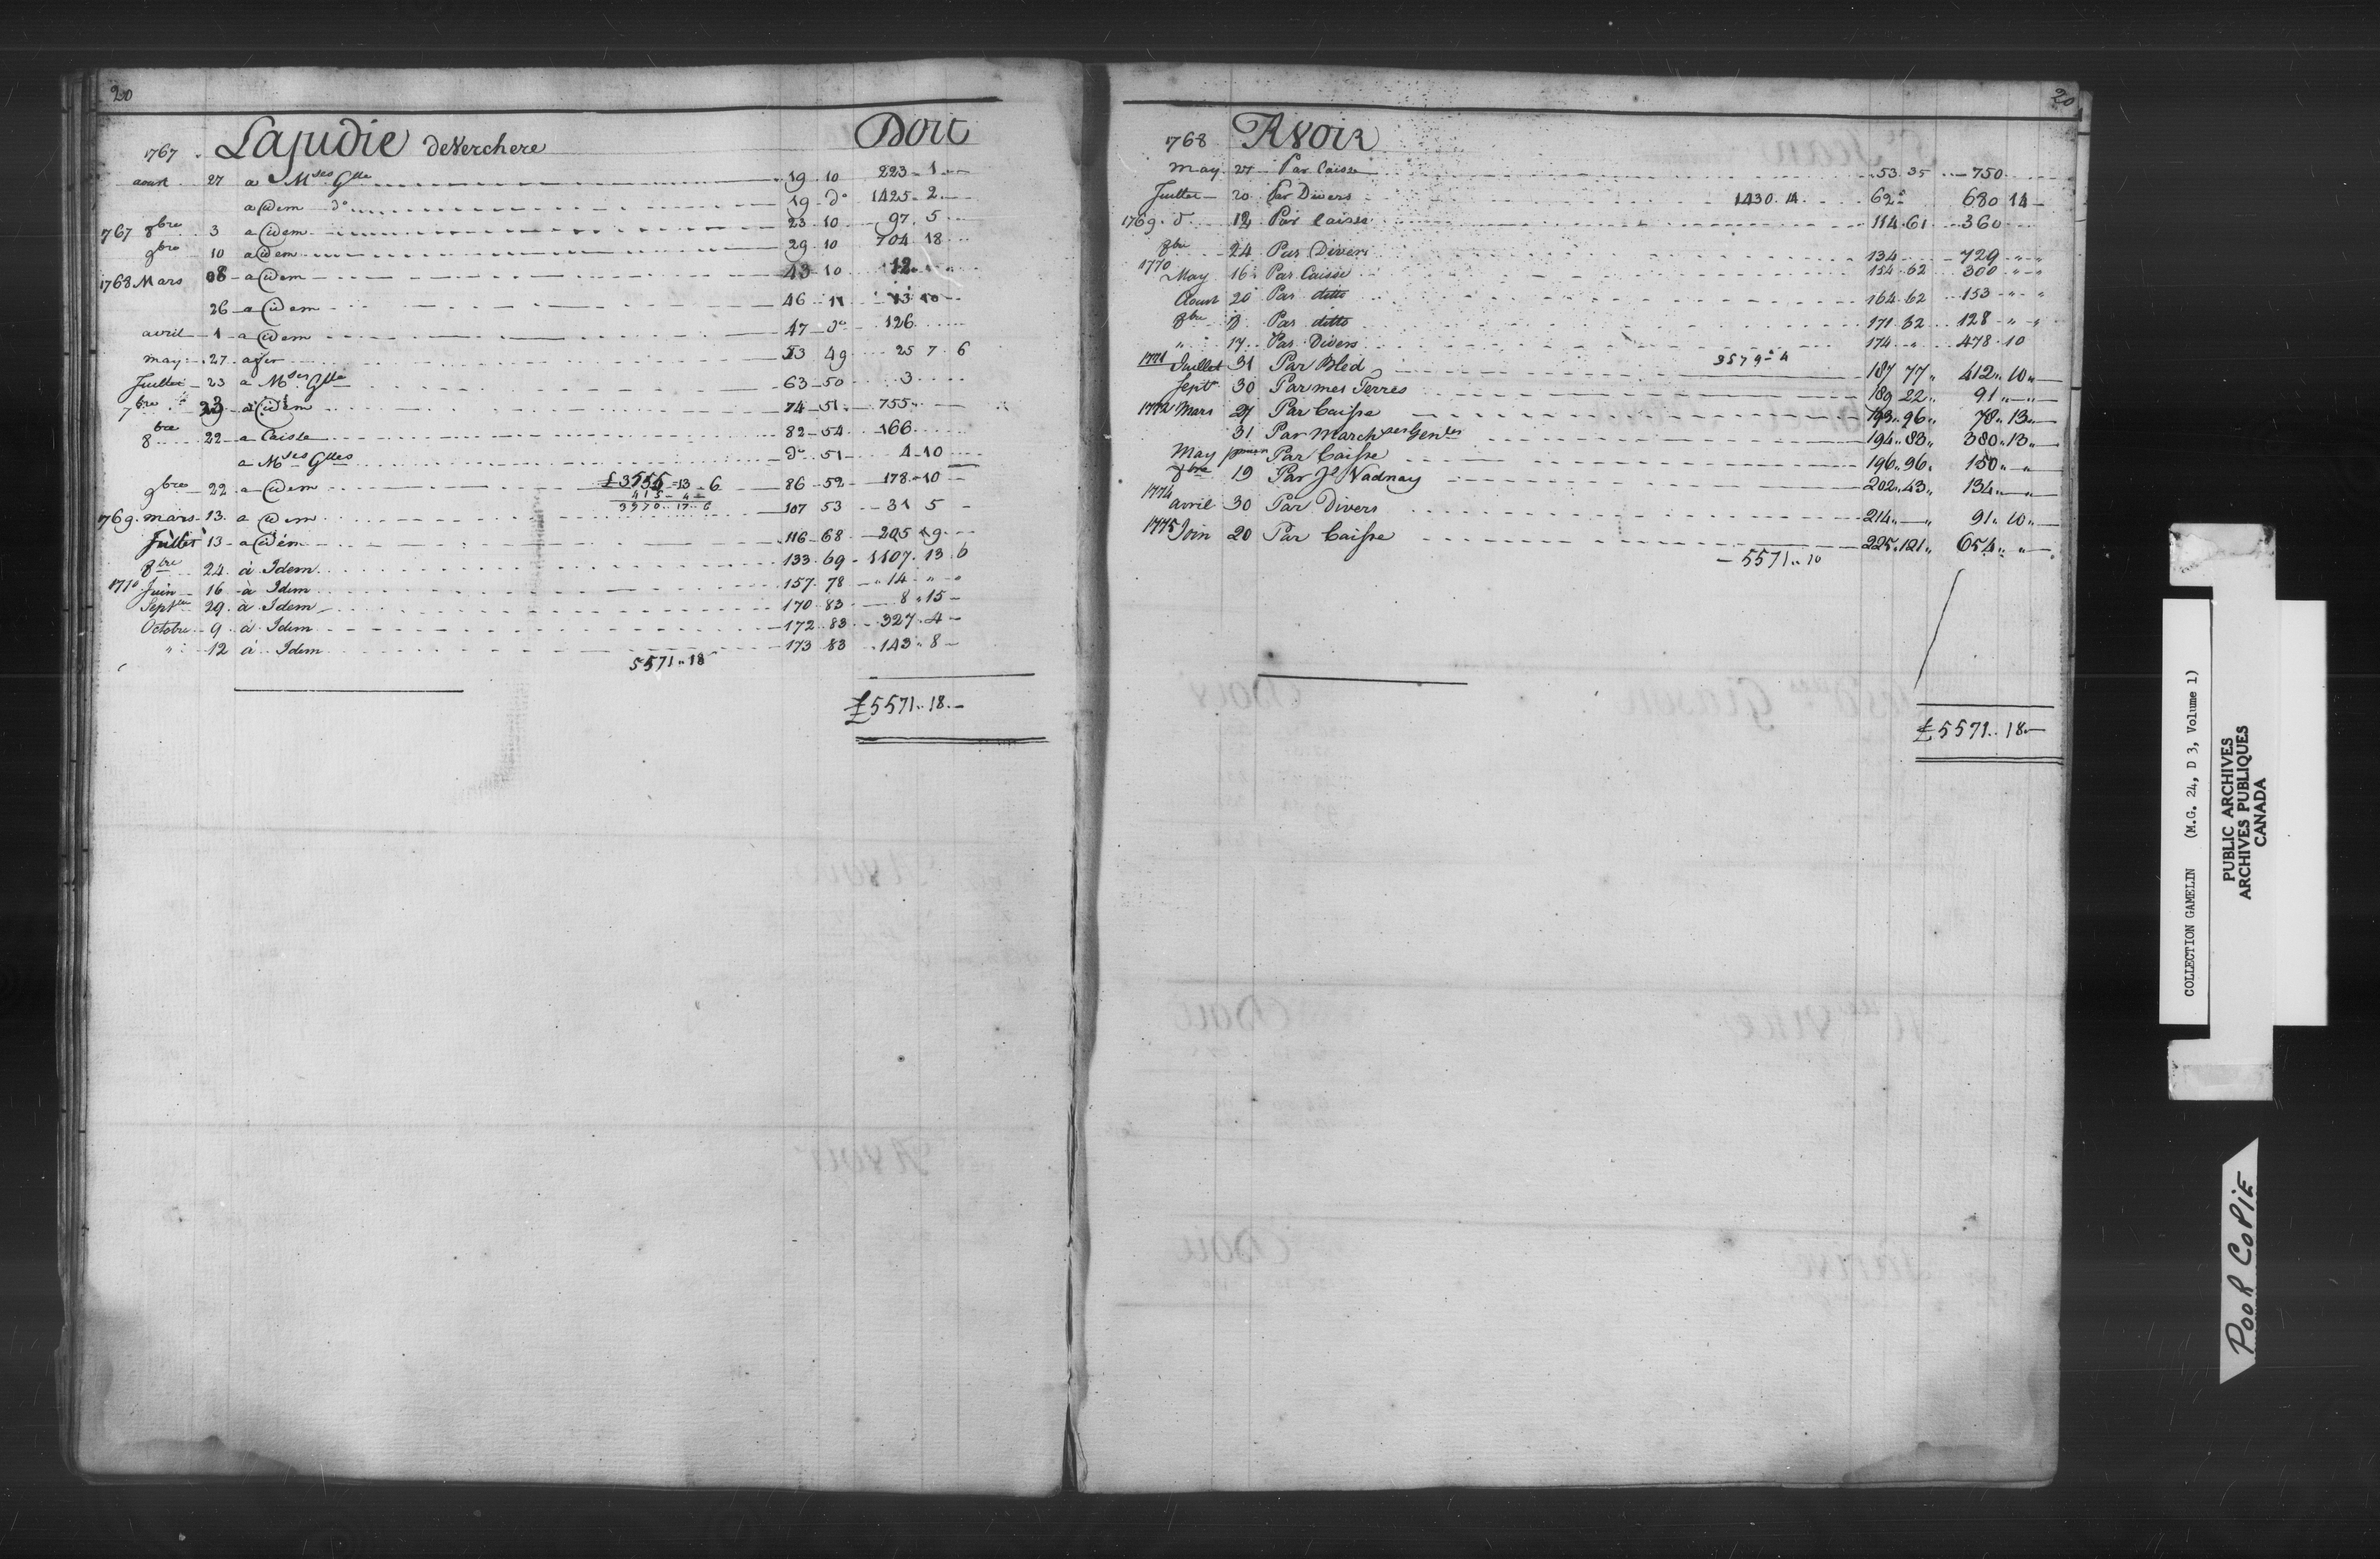 20
1767 Lajudie deVerchere Doit
aoust 27 a Mses Glle 19 10 223 1
a idem do 19 do 1425 2
1767 8bre 3 a idem 23 10 97 5
9bre 10 a idem 29 10 704 18
1768 Mars 08 a idem 43 10 12
26 a idem 46 11 13 10
avril 1 a idem 47 do 126
may 27 a 53 49 25 7 6
Juillet 23 a Mses Glle 63 50 3
7bre 23 a idem 74 51 755
8bre 22 a Caisse 82 54 166
a Mses Glles do 51 4 10
9bre 22 a idem £3755 13 6 86 52 178 10
415 4
3970 17 6
1769 mars 13 a idem 107 53 31 5
Juillet 13 a idem 116 68 205 19
8bre 24 à Idem 133 69 1107 13 6
1770 Juin 16 à Idem 157 78 14 " "
Septbre 29 à Idem 170 83 8 15
Octobre 9 à Idem 172 83 327 4
" 12 à Idem 173 83 143 8
5571 18
£5571 18
20
1768 Avoir
May 27 Par Caisse 53 35 750
Juillet 20 Par Divers 1430 14 62 680 14
1769 do 12 Par Caisse 114 61 360
8bre 24 Par Divers 134 729 " "
1770 May 16 Par Caisse 154 62 300 " "
Aoust 20 Par ditto 164 62 153 " "
8bre Par ditto 171 82 128 " "
" 17 Par Divers 174 " 478 10
3579 4
1771 Juillet 31 Par Bled 187 77 412 10
Septr 30 Par mes Terres 189 22 91 "
1772 Mars 27 Par Caisse 193 96 78 13
31 Par Marchses Genles 194 83 380 13
May Par Caisse 196 96 150 "
8bre 19 Par Jo Nadnay 202 43 134 "
1774 avril 30 Par Divers 214 91 10
1775 Join 20 Par Caisse 225 121 654 "
5571 10
£5571 18
COLLECTION GAMELIN (M.G. 24, D 3, Volume 1)
PUBLIC ARCHIVES
ARCHIVES PUBLIQUES
CANADA
POOR COPIE